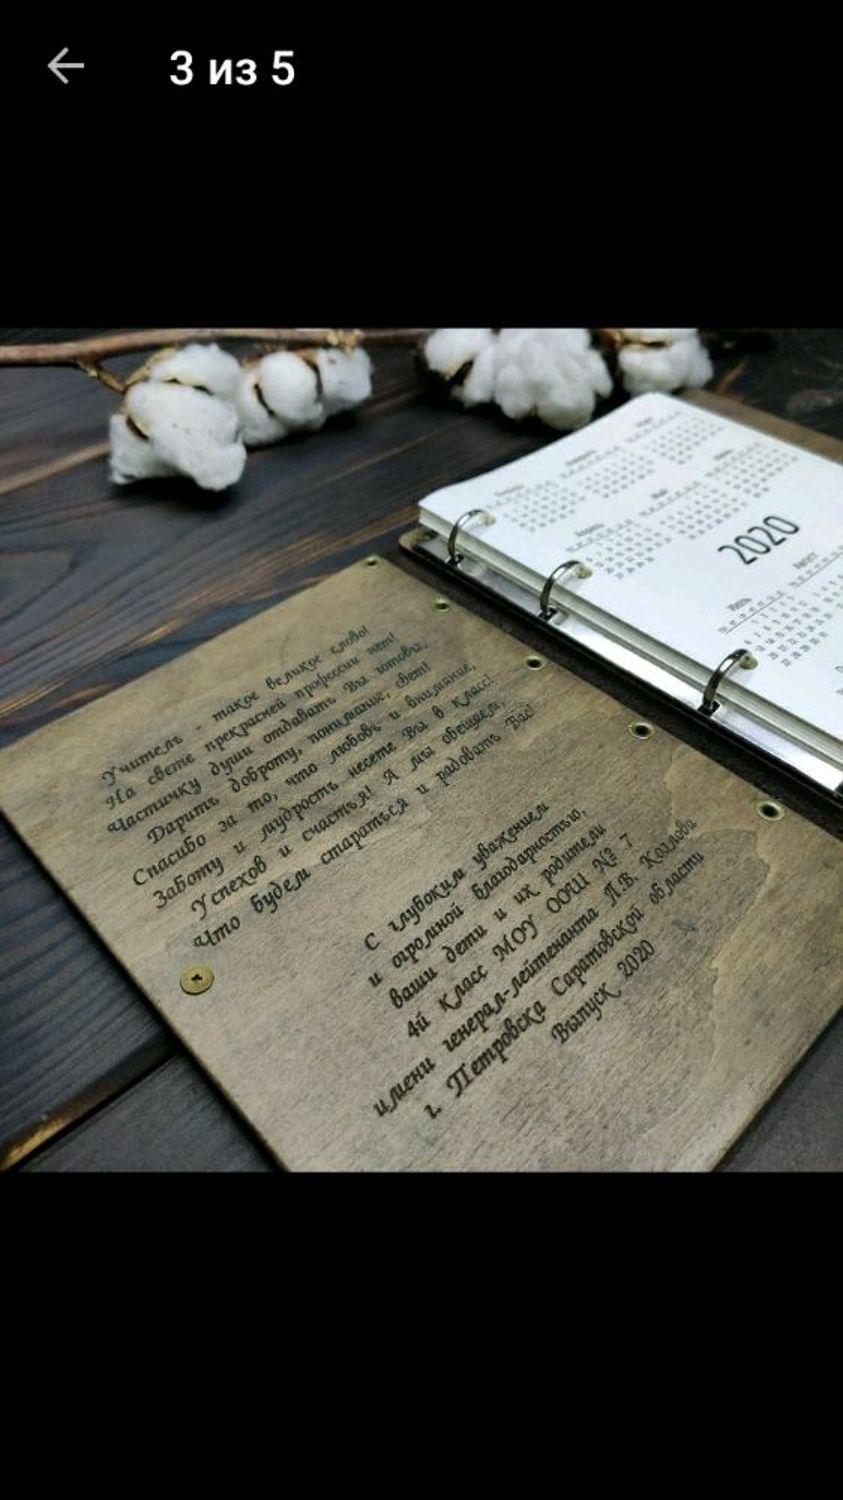 3 из 5
Учитель - такое великое слово!
На свете прекрасней профессии нет!
Частичку души отдавать Вы готовы,
Дарить доброту, понимание, свет!
Спасибо за то, что любовь и внимание,
Заботу и мудрость несете Вы в класс!
Успехов и счастья! А мы обещаем,
Что будем стараться и радовать Вас!
С глубоким уважением
и огромной благодарностью,
ваши дети и их родители
4й класс МОУ ООШ № 7
имени генерал-лейтенанта Л.В. Козлова
г. Петровска Саратовской области
Выпуск 2020
2020
Май
Июль
Август